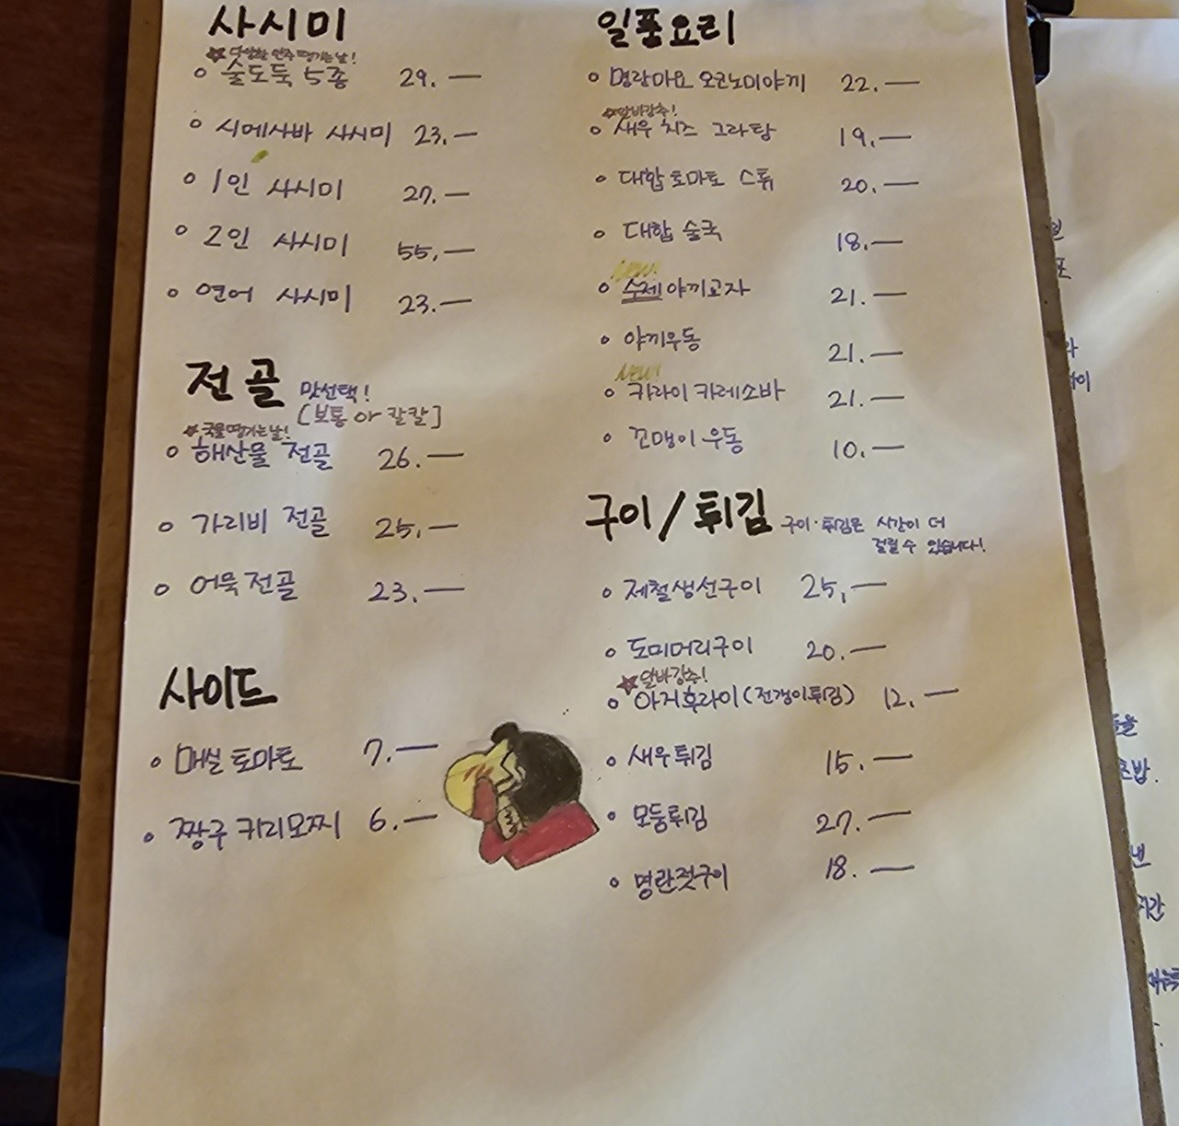 사시미
다양한 안주 땡기는 날!
술도둑 5종 29.—
시메사바 사시미 23.—
1인 사시미 27.—
2인 사시미 55.—
연어 사시미 23.—
전골 맛선택!
[보통 or 칼칼]
국물 땡기는 날!
해산물 전골 26.—
가리비 전골 25.—
어묵 전골 23.—
사이드
매실 토마토 7.—
짱구 키리모찌 6.—
일품요리
명란마요 오코노미야끼 22.—
알바강추!
새우 치즈 그라탕 19.—
대합 토마토 스튜 20.—
대합 술국 18.—
New!
수제 야끼교자 21.—
야끼우동 21.—
New!
카라이 카레소바 21.—
꼬맹이 우동 10.—
구이/튀김 구이·튀김은 시간이 더
걸릴 수 있습니다!
제철생선구이 25,—
도미머리구이 20.—
알바강추!
아지후라이(전갱이튀김) 12.—
새우튀김 15.—
모둠튀김 27.—
명란젓구이 18.—